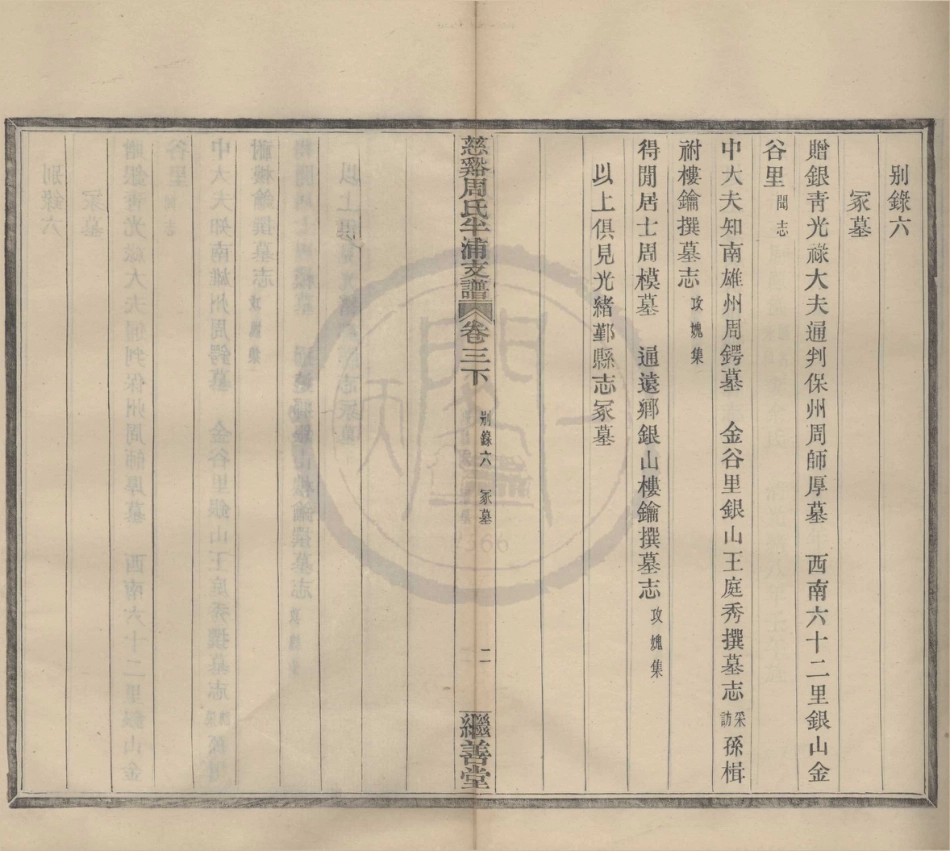 別錄六
冢墓
贈銀青光祿大夫通判保州周師厚墓　西南六十二里銀山金
谷里聞志
中大夫知南雄州周鍔墓　金谷里銀山王庭秀撰墓志采訪孫楫
祔樓鑰撰墓志攻媿集
得閒居士周模墓　通遠鄉銀山樓鑰撰墓志攻媿集
以上俱見光緒鄞縣志冢墓
慈谿周氏半浦支譜　卷三下　別錄六　冢墓　二　繼善堂